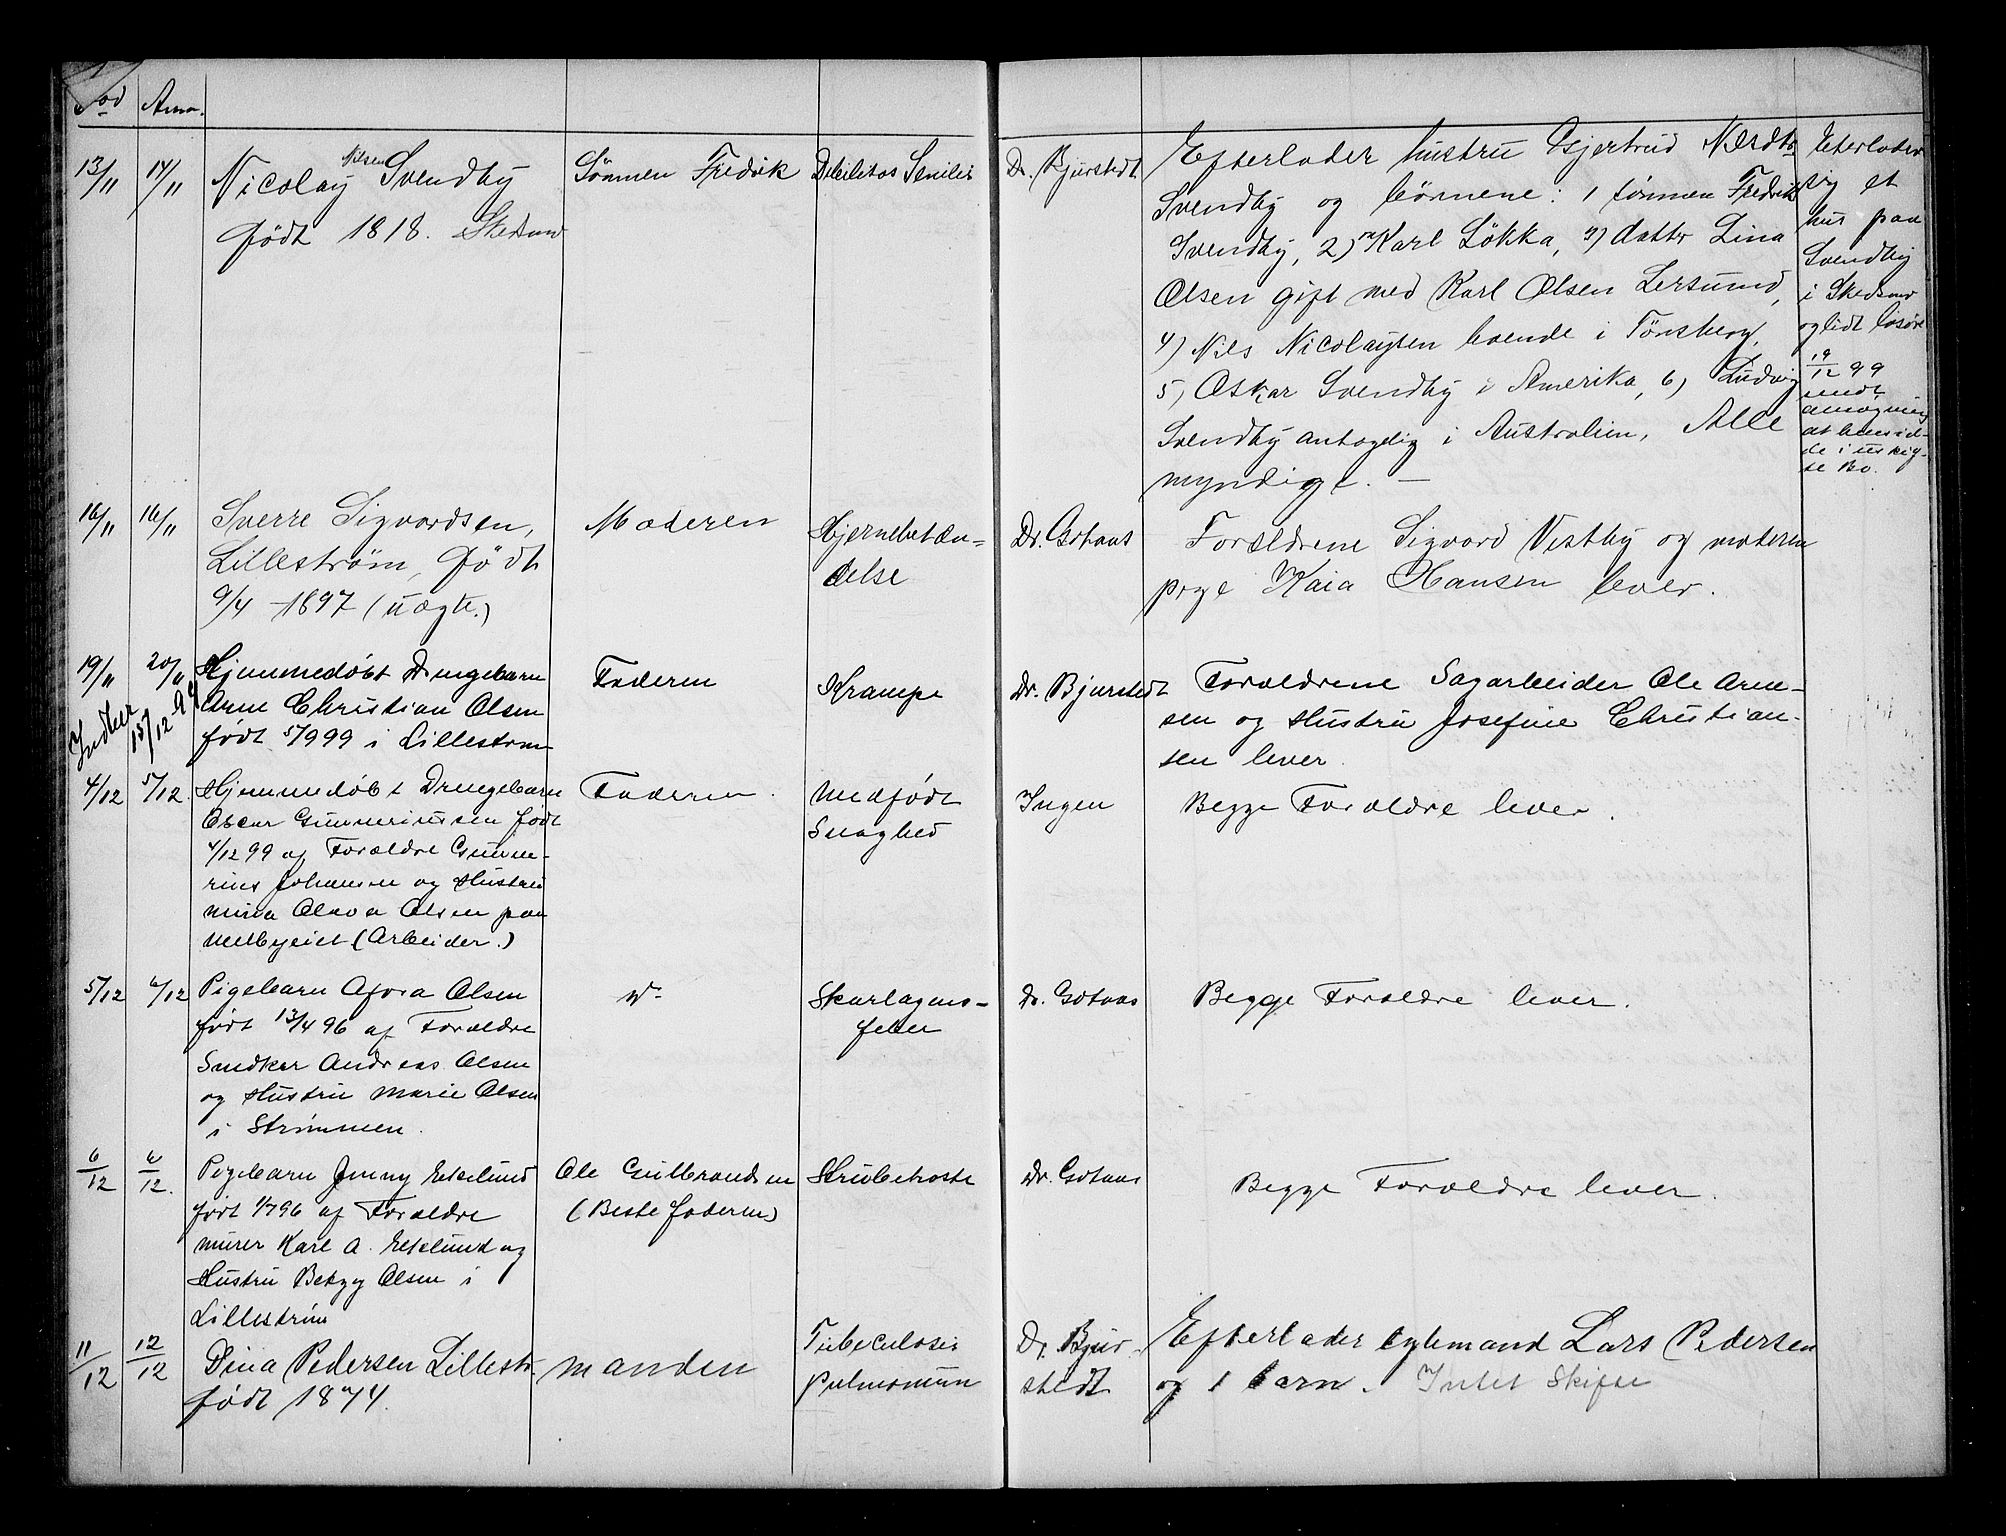 Død Anm.
13/11 14/11 Nicolay Nilsen Svendby
født 1818. Skedsmo
Sönnen Fredrik
Debilitas Senilis
Dr. Bjurstedt
Efterlader hustru Gjertrud
Svendby og börnene: 1 sønnen Fredrik
Svendby, 2) Karl Lökka, 3) datter Lina
Olsen gift med Karl Olsen Lersund,
4) Nils Nicolaysen boende i Tönsberg,
5) Oskar Svendby i Amerika, 6) Ludvig
Svendby antagelig i Australien, Alle
myndige. —
Eterlader
sig et
hus paa
Svendby
i Skedsmo
og lidt løsöre
12 99
16/11 16/11 Sverre Sigvardsen,
Lilleström, født
9/4 1897 (uægte.)
Moderen
Hjernebetæn=
delse
Dr. Gotaas
Forældrene Sigvard Vestby og moderen
pige Kaia Hansen lever.
19/11 20/11 Hjemmedøbt Drengebarn
Arne Christian Olsen
født 5/9 99 i Lillestrøm
Indber 15/12 99
Faderen
Krampe
Dr. Bjurstedt
Forældrene Sagarbeider Ole Arne-
sen og Hustru Josefine Christian-
sen lever.
4/12 5/12 Hjemmedøbt Drengebarn
Oscar Gunneriussen født
4/12 99 af Forældre Gunne-
rius Johansen og Hustru
Mina Olava Olsen paa
Melbyeiet (Arbeider.)
Faderen.
Medfödt
Svaghed
Ingen
Begge Forældre lever.
5/12 6/12 Pigebarn Afora Olsen
født 13/4 96 af Forældre
Snedker Andreas Olsen
og Hustru Marie Olsen
i Strømmen.
Skarlagens-
feber
Dr. Gotaas
Begge Forældre lever.
6/12 6/12. Pigebarn Jenny Ekelund
født 1/7 96 af Forældre
murer Karl A. Ekelund og
Hustru Betzy Olsen i
Lillestrøm
Ole Gulbrandsen
(Beste faderen)
Strubehoste
Dr. Gotaas
Begge Forældre lever.
11/12 12/12 Dina Pedersen Lillestr.
født 1874.
manden
Tubeculosis
Pulmonum
Dr. Bjur-
stedt
Efterlader egtemand Lars Pedersen
og 1 barn. Intet Skifte